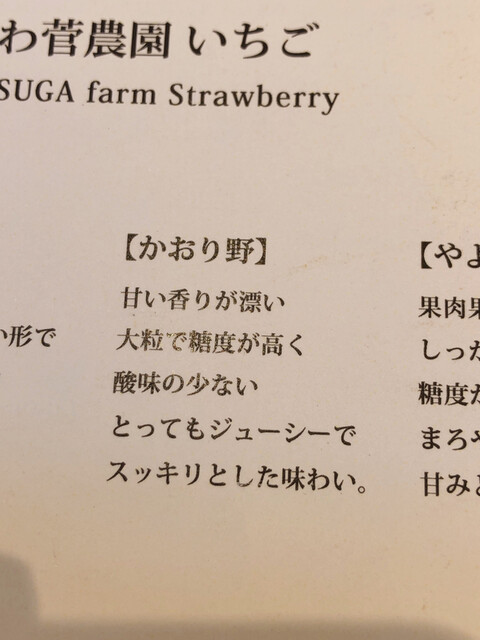 わ菅農園 いちご
SUGA farm Strawberry
い形で
【かおり野】
甘い香りが漂い
大粒で糖度が高く
酸味の少ない
とってもジューシーで
スッキリとした味わい。
【やよ
果肉果
しった
糖度が
まろや
甘みと